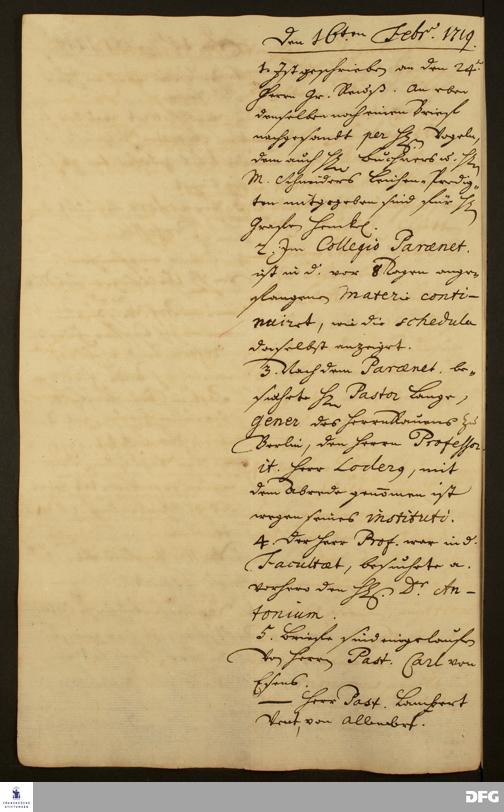 Den 16ten Febr. 1719.
1. Ist geschrieben an den 24.
Herrn Gr. Reuß. An eben
denselben noch einen Brief
nachgesandt per H. Vogeln,
dem auch H. Buchners u. H.
M. Schneiders Leichen-Predig-
ten mitgegeben sind für H.
Grafen Henkel.
2. Im Collegio Paraenet.
ist in d. vor 8 Tagen ange-
fangenen Materie conti-
nuiret, wie die schedula
daselbst anzeiget.
3. Nach dem Paraenet. be-
suchte H. Pastor Lange,
gener des Herrn Rauens zu
Berlin, den Herrn Professor.
it. Herr Loder9, mit
dem Abrede genommen ist
wegen seines instituti.
4. Der Herr Prof. war in d.
Facultaet, besuchte a.
vorhero den H. Dr. An-
tonium.
5. Briefe sind eingelaufen
Von Herrn Past. Carl von
Esens.
— Herr Past. Lambert
Vent, von Allendorf.
FRANCKESCHE
STIFTUNGEN
DFG